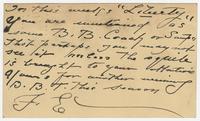 For this week's "Liberty"
You are mentioning as
some B.B. Coach or Scout
that perhaps you may not
see it unless the article
is brought to your attention
yours for another winning
B.B. this season
J. E.